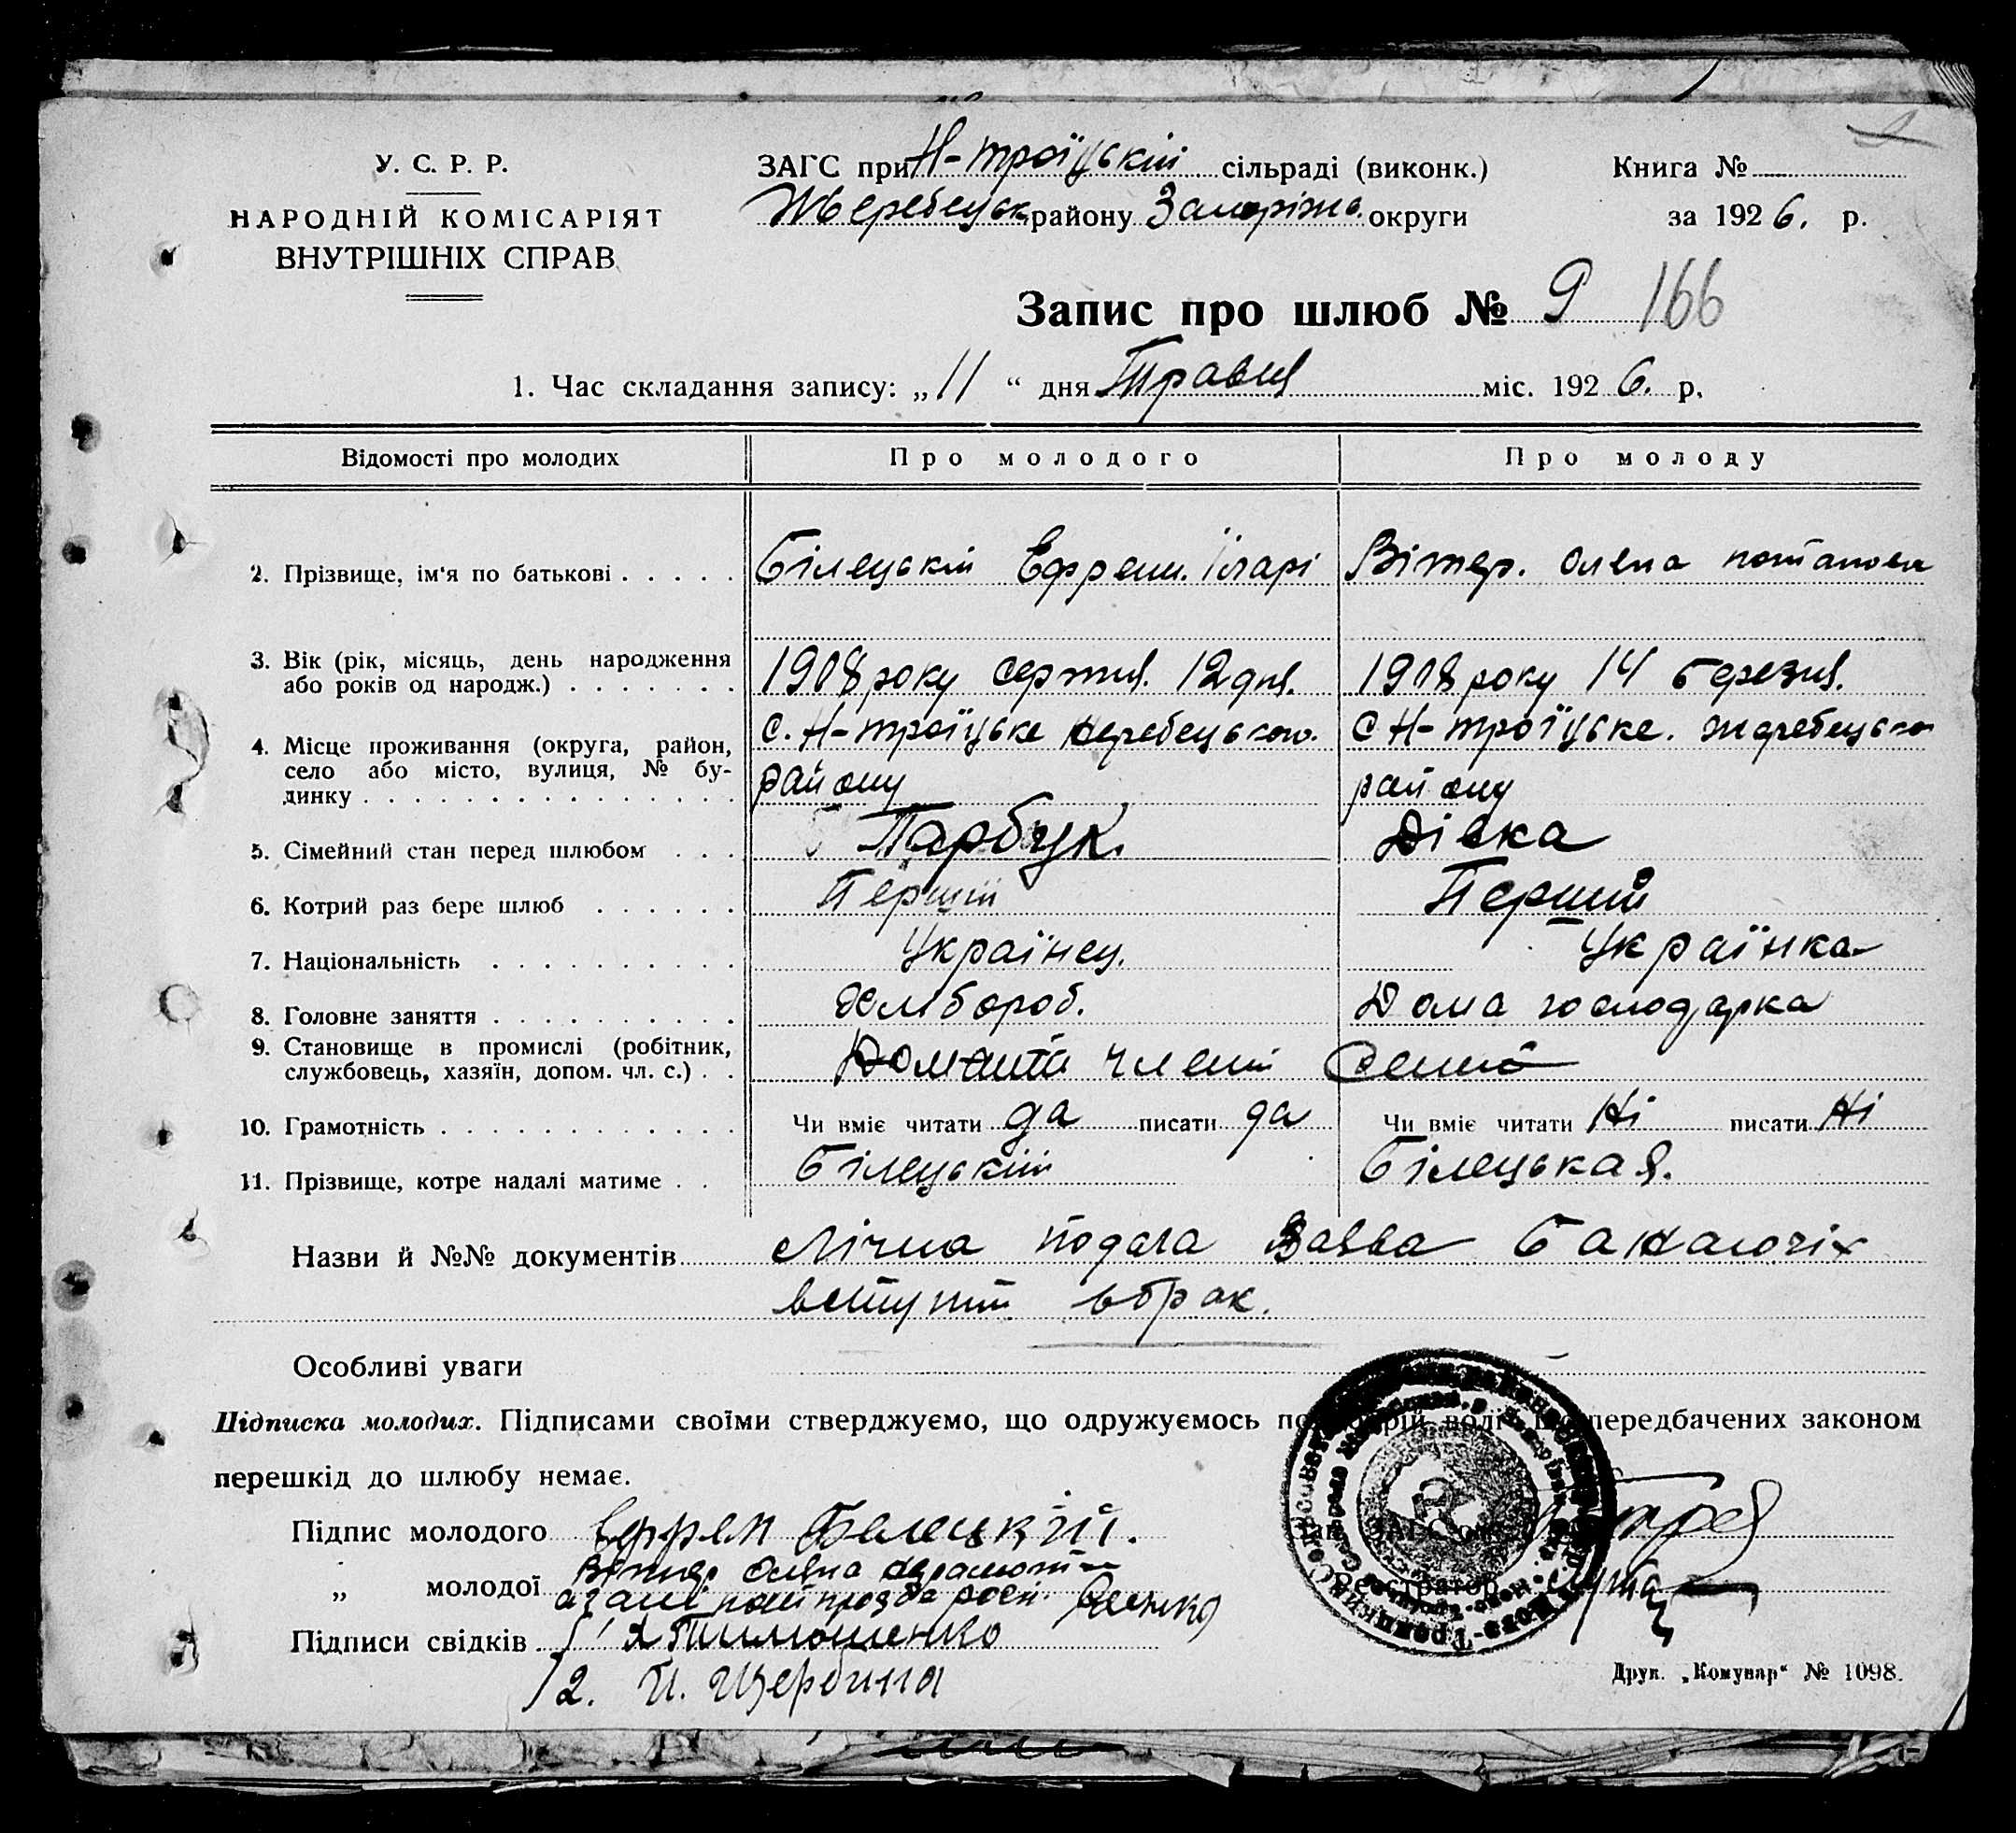 У. С. Р. Р.
НАРОДНІЙ КОМІСАРІЯТ
ВНУТРІШНІХ СПРАВ
ЗАГС при Н-троїцькій сільраді (виконк.)
Жеребецьк району Запоріжь. округи
Книга №
за 1926. р.
Запис про шлюб № 9 166
1. Час складання запису: „11“ дня Травня міс. 1926. р.
Відомості про молодих Про молодого Про молоду
2. Прізвище, ім‘я по батькові Білецькій Ефрем. Іларі Вітер. Олена потапова
3. Вік (рік, місяць, день народження
або років од народж.) 1908 року серпня. 12 дня. 1908 року 14 березня.
4. Місце проживання (округа, район,
село або місто, вулиця, № бу-
динку
с. Н-троїцьке жеребецького.
району
с Н-троїцьке. жеребецько
району
5. Сімейний стан перед шлюбом Парбук. Дівка
6. Котрий раз бере шлюб Першій Перший
7. Національність Українец. Українка
8. Головне заняття Хлібороб. Дома господарка
9. Становище в промислі (робітник,
службовець, хазяїн, допом. чл. с.) члени Семи
10. Грамотність Чи вміє читати да писати да Чи вміє читати Ні писати Ні
11. Прізвище, котре надалі матиме Білецькій Білецькая.
Назви й №№ документів Лічна подала Заява Бажаючіх
вступит вбрак.
Особливі уваги
Підписка молодих. Підписами своїми стверджуємо, що одружуємось по добрій волі передбачених законом
перешкід до шлюбу немає.
Підпис молодого Ефрем Белецкий.
„ молодої Вітер Олена неграмотна
Підписи свідків 1 Я Тимошенко
2. И. Щербина
Реєстратор
Друк. „Комунар“ № 1098.